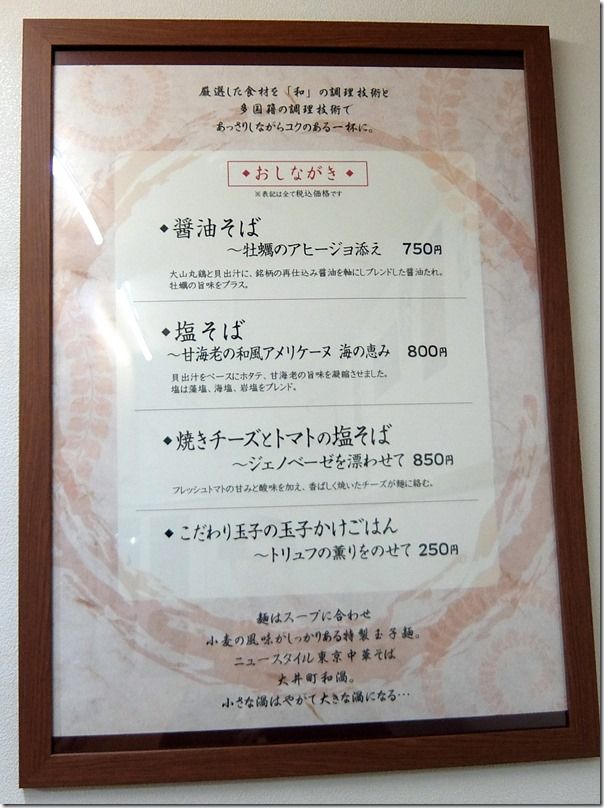 厳選した食材を「和」の調理技術と
多国籍の調理技術で
あっさりしながらコクのある一杯に。
◆おしながき◆
※表記は全て税込価格です
◆醤油そば
〜牡蠣のアヒージョ添え 750円
大山丸鶏と貝出汁に、銘柄の再仕込み醤油を軸にしブレンドした醤油たれ。
牡蠣の旨味をプラス。
◆塩そば
〜甘海老の和風アメリケーヌ 海の恵み 800円
貝出汁をベースにホタテ、甘海老の旨味を凝縮させました。
塩は藻塩、海塩、岩塩をブレンド。
◆焼きチーズとトマトの塩そば
〜ジェノベーゼを漂わせて 850円
フレッシュトマトの甘みと酸味を加え、香ばしく焼いたチーズが麺に絡む。
◆こだわり玉子の玉子かけごはん
〜トリュフの薫りをのせて 250円
麺はスープに合わせ
小麦の風味がしっかりある特製玉子麺。
ニュースタイル東京中華そば
大井町和渦。
小さな渦はやがて大きな渦になる…